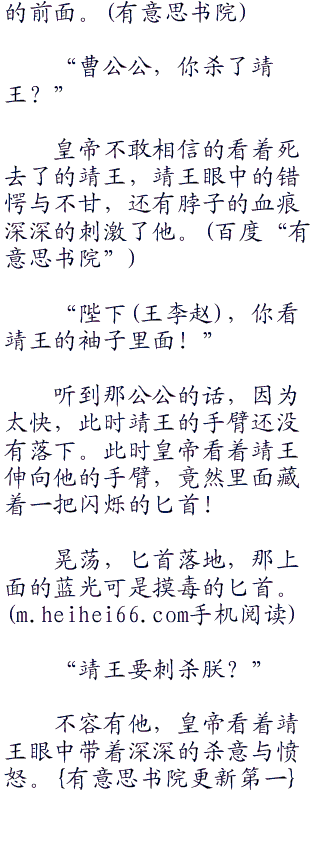 的前面。(有意思书院)
“曹公公，你杀了靖
王？”
皇帝不敢相信的看着死
去了的靖王，靖王眼中的错
愕与不甘，还有脖子的血痕
深深的刺激了他。(百度“有
意思书院”)
“陛下(王李赵)，你看
靖王的袖子里面！”
听到那公公的话，因为
太快，此时靖王的手臂还没
有落下。此时皇帝看着靖王
伸向他的手臂，竟然里面藏
着一把闪烁的匕首！
晃荡，匕首落地，那上
面的蓝光可是摸毒的匕首。
(m.heihei66.com手机阅读)
“靖王要刺杀朕？”
不容有他，皇帝看着靖
王眼中带着深深的杀意与愤
怒。{有意思书院更新第一}